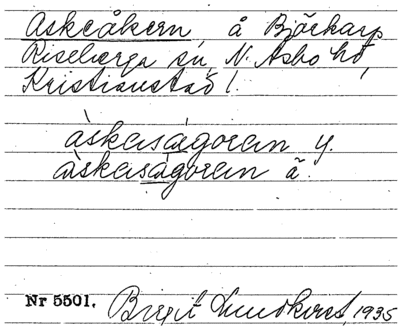 Askeåkern å Björkarp
Riseberga sn, N. Åsbo hd,
Kristianstad l.
àskasàgoran y.
àskasàgoran ä.
Nr 5501. Birgit Lundkvist 1935